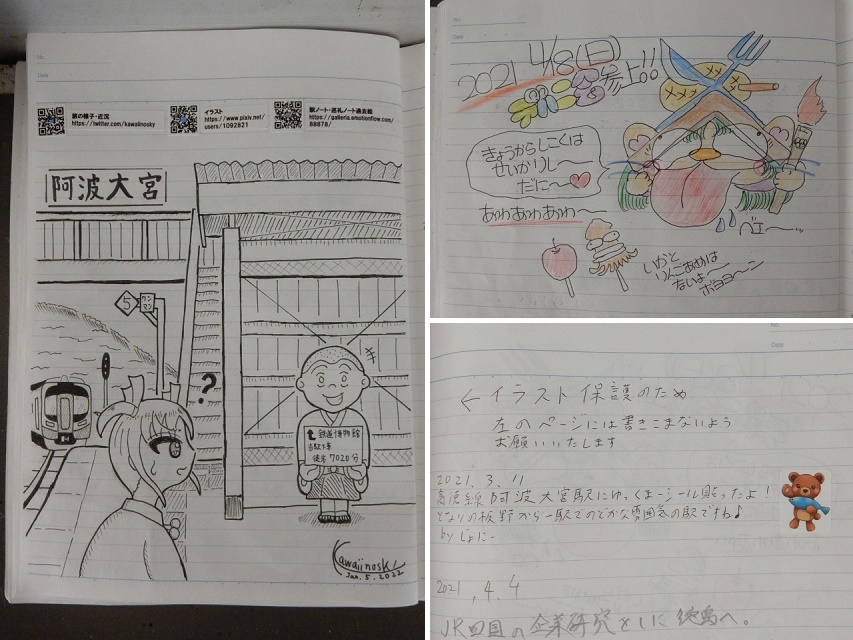 旅の様子・近況
https://twitter.com/kawaiinosky
イラスト
https://www.pixiv.net/
users/1092821
駅ノート・巡礼ノート過去絵
https://galleria.emotionflow.com/
88878/
阿波大宮
5
ワンマン
?
鉄道博物館
当駅下車
徒歩7020分
Kawaiinosky
Jan.5.2022
No.
Date
2021 4/18(日)
参上!!
きょうからしこくは
せいかりレ〜
だに〜♥
あわあわあわ
べエ〜〜ッ
いかと
りんごあめは
ないよ〜
ボヨヨ〜ン
Date
←イラスト保護のため
左のページには書きこまないよう
お願いいたします
2021.3.11
高徳線阿波大宮駅にゆっくまーシール貼ったよ!
となりの板野から一駅でのどかな雰囲気の駅ですね♪
by じょにー
2021.4.4
JR四国の企業研究をしに徳島へ。